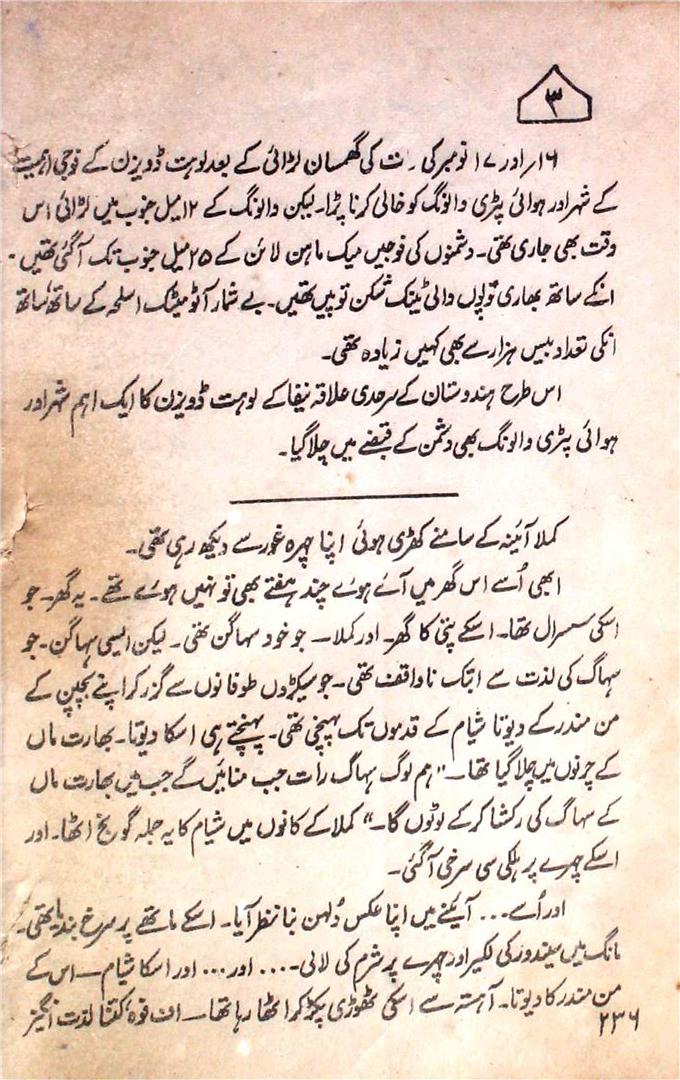 ۳
۱۶؍اور ۱۷ نومبر کی رات کی گھمسان لڑائی کے بعد لوہت ڈویزن کے فوجی اہمیت
کے شہر اور ہوائی پٹری والونگ کو خالی کرنا پڑا۔ لیکن والونگ کے ۱۲ میل جنوب میں لڑائی اس
وقت بھی جاری تھی۔ دشمنوں کی فوجیں میک ماہن لائن کے ۲۵ میل جنوب تک آ گئی تھیں۔
انکے ساتھ بھاری گولوں والی ٹینک شکن توپیں تھیں۔ بے شمار آٹومیٹک اسلحہ کے ساتھ ساتھ
انکی تعداد بیس ہزار سے بھی کہیں زیادہ تھی۔
اس طرح ہندوستان کے سرحدی علاقہ نیفا کے لوہت ڈویزن کا ایک اہم شہر اور
ہوائی پٹری والونگ بھی دشمن کے قبضے میں چلا گیا۔
کملا آئینہ کے سامنے کھڑی ہوئی اپنا چہرہ غور سے دیکھ رہی تھی۔
ابھی اُسے اس گھر میں آئے ہوئے چند ہفتے بھی تو نہیں ہوئے تھے۔ یہ گھر۔ جو
اسکی سسرال تھا۔ اسکے پتی کا گھر۔ اور کملا۔ جو خود سہاگن تھی۔ لیکن ایسی سہاگن۔ جو
سہاگ کی لذت سے ابتک ناواقف تھی۔ جو سیکڑوں طوفانوں سے گزر کر اپنے بچپن کے
من مندر کے دیوتا شیام کے قدموں تک پہنچی تھی۔ پہنچتے ہی اسکا دیوتا۔ بھارت ماں
کے چرنوں میں چلا گیا تھا۔ "ہم لوگ سہاگ رات جب منائیں گے جب میں بھارت ماں
کے سہاگ کی رکشا کر کے لوٹوں گا۔" کملا کے کانوں میں شیام کا یہ جملہ گونج اٹھا۔ اور
اسکے چہرے پر ہلکی سی سرخی آ گئی۔
اور اُسے... آئینے میں اپنا عکس دُلہن بنا نظر آیا۔ اسکے ماتھے پر سرخ بندیا تھی۔
مانگ میں سیندور کی لکیر اور چہرے پر شرم کی لالی۔... اور... اور اسکا شیام۔ اس کے
من مندر کا دیوتا۔ آہستہ سے اسکی ٹھوڑی پکڑ کر اٹھا رہا تھا۔ اف فوہ کتنا لذت انگیز
۲۳۶